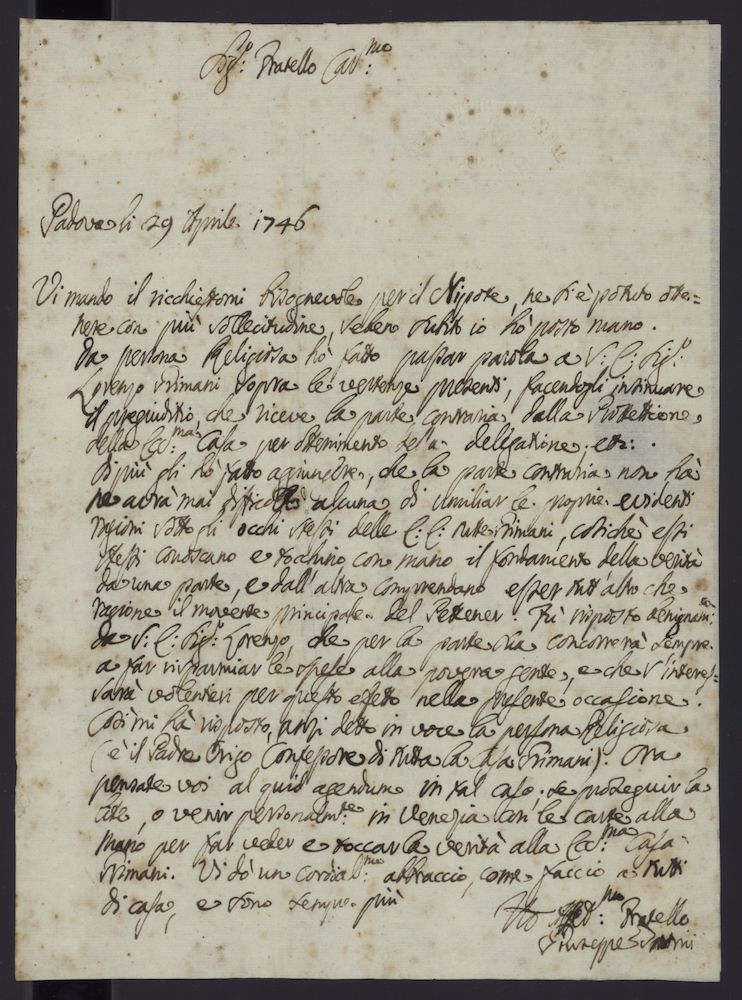 Sig.r Fratello Car:mo
Padova li 29 Aprile 1746
Vi mando il ricchiestomi bisognevole per il Nipote, ne si è potuto otte=
nere con più sollecitudine, sebene subito io hò posto mano.
Da persona Religiosa hò fatto passar parola a S: E: Sig:r
Lorenzo Grimani sopra le vertenze presenti, facendogli insinuare
il pregiuditio, che riceve la parte contraria dalla Protettione
della Ca:ma Casa per ottenimento della deligatione: etc:.
Di più gli hò fatto aggiungere, che la parte contraria non hà
ne avrà mai difficoltà alcuna di umiliar le proprie evidenti
ragioni sotto gli occhi stessi delle E: E: tutte Grimani, cosichè essi
stessi conoscano e tocchino con mano il fondamento della verità
da una parte, e dall'altra comprendano esser tutt'altro che
ragione il movente principale del Pettener. Fù risposto benignam:te
da S: E: Sig:r Lorenzo, che per la parte sua concorrerà sempre
a far risparmiar le spese alla povera gente, e che s'interes=
sarà volentieri per questo effetto nella presente occasione.
Così mi hà risposto, anzi detto in voce la persona Religiosa
(è il Padre Origo Confessore di tutta la Casa Grimani). Ora
pensate voi al quid agendum in tal caso, se proseguir la
lite, o venir personalm:te in Venezia con le carte alla
mano per far veder e toccar la verità alla Ca:ma Casa
Grimani. Vi dò un cordial:mo abbraccio, come faccio a tutti
di casa, e sono sempre più
Vro Aff:mo Fratello
Giuseppe